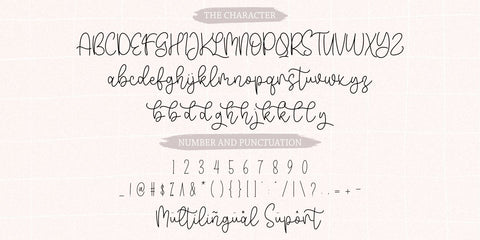 THE CHARACTER
ABCDEFGHIJKLMNOPQRSTUVWXYZ
abcdefghijklmnopqrstuvwxyz
bbddghhjkktlly
NUMBER AND PUNCTUATION
1 2 3 4 5 6 7 8 9 0
_ ! @ # $ % ^ & * ( ) { } [ ] " ' / | \ ? . , = + -
Multilingual Suport